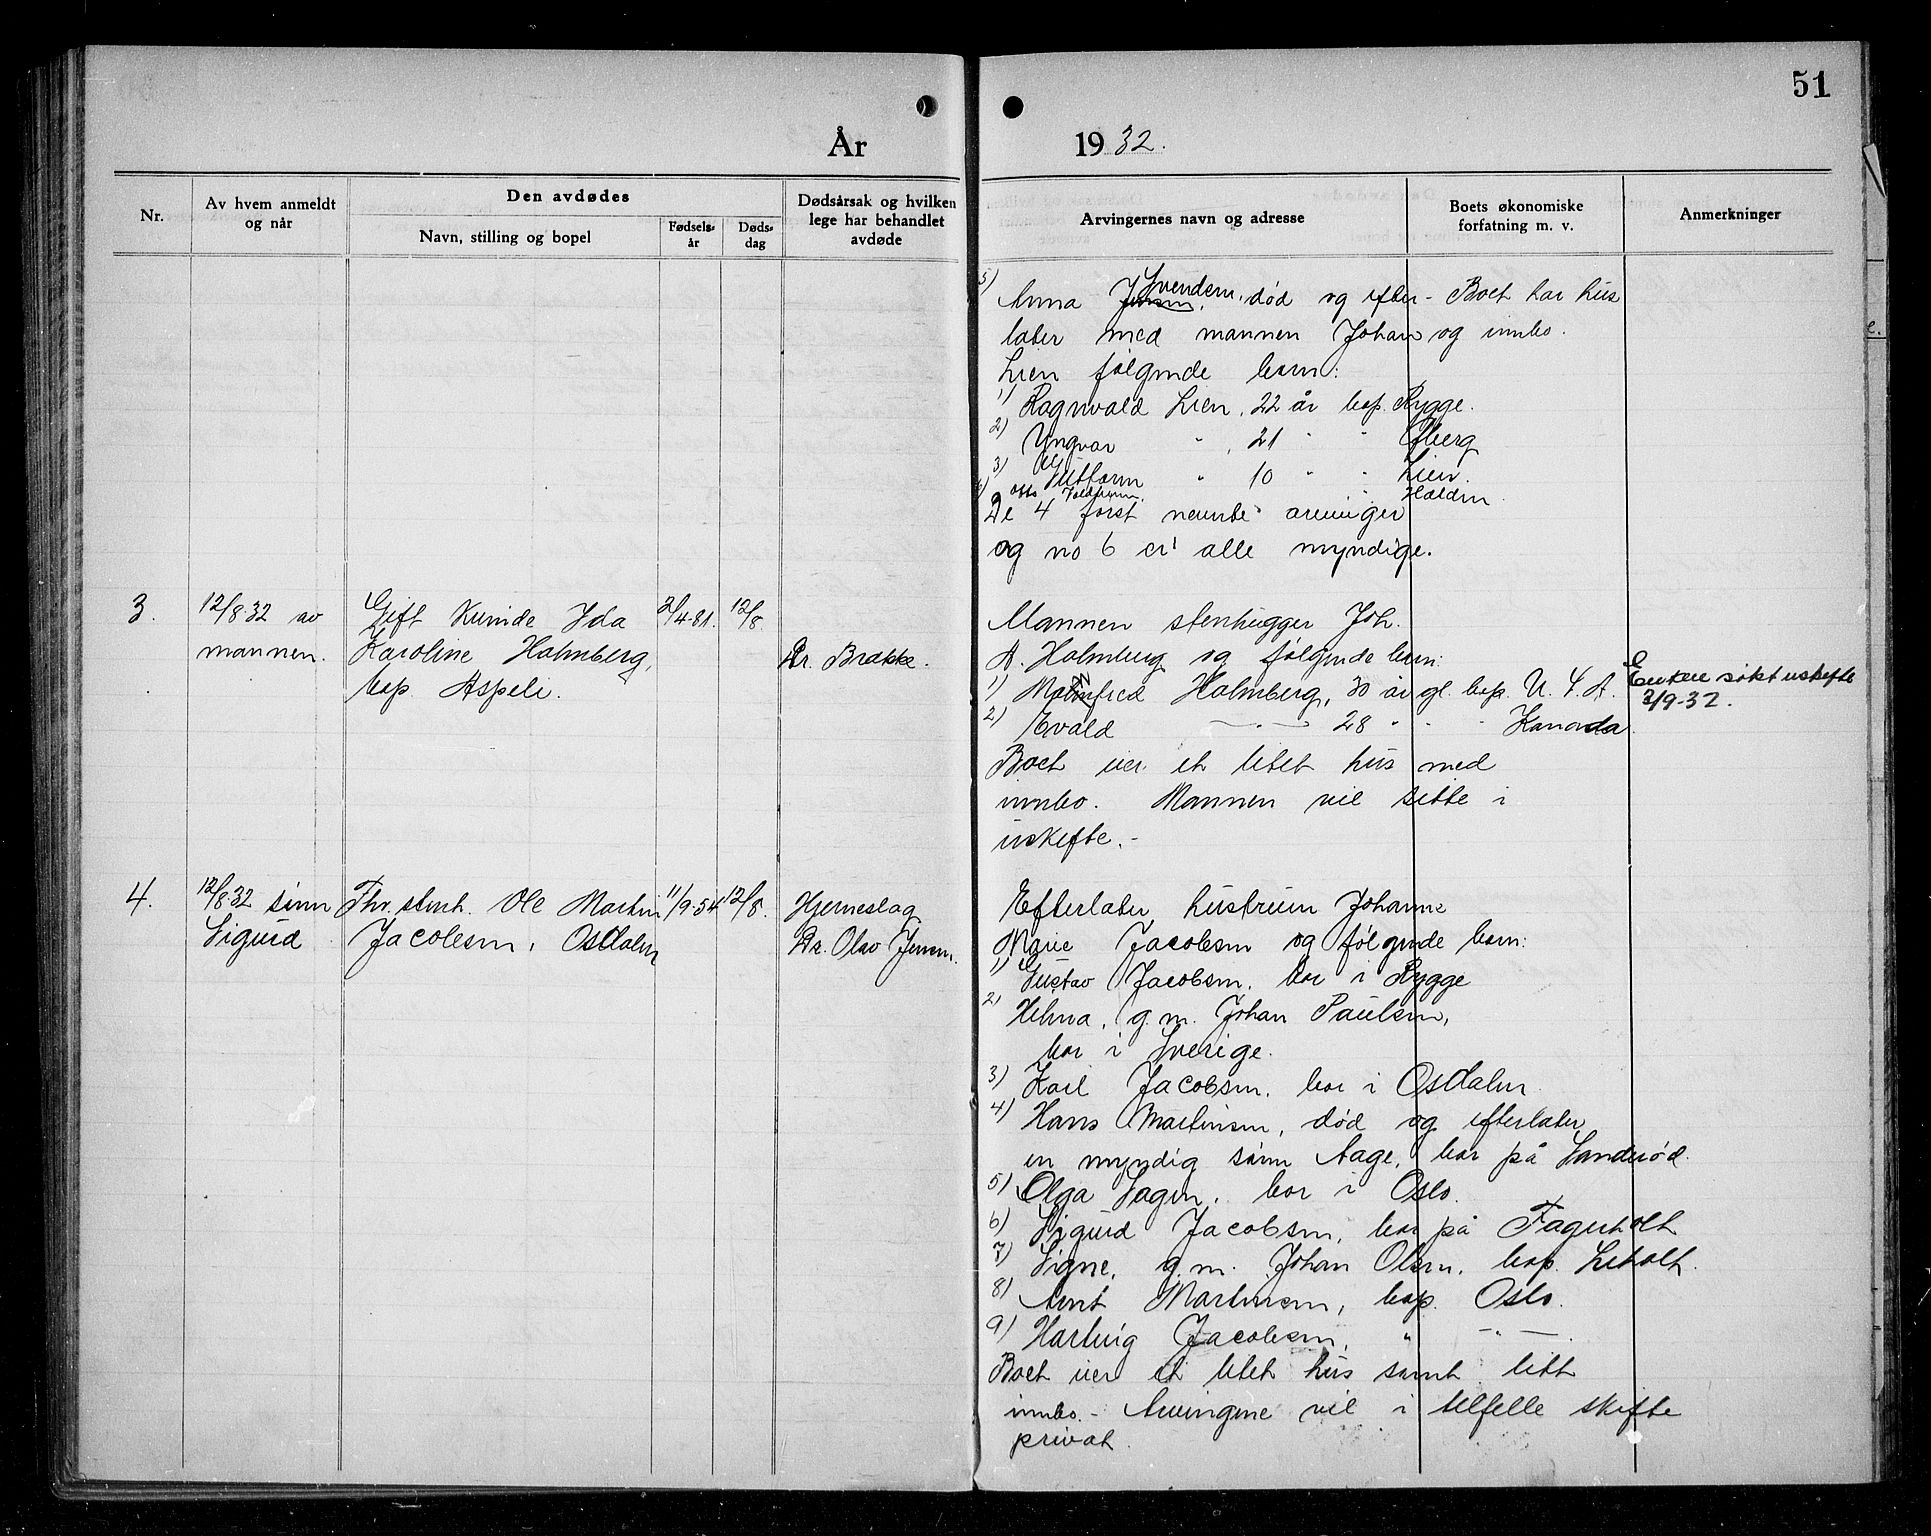 51
År 1932.
Nr.
Av hvem anmeldt og når
Den avdødes
Navn, stilling og bopel
Fødsels-år
Døds-dag
Dødsårsak og hvilken lege har behandlet avdøde
Arvingernes navn og adresse
Boets økonomiske forfatning m. v.
Anmerkninger
5) Anna Svendsen, død og efter- Boet har hus
later med mannen Johan og innbo.
Lien følgende barn:
1) Ragnvald Lien, 22 år bop. Rygge.
2) Yngvar " , 21 " " Öberg
3) Guttorm " 10 " " Lien.
4) " Halden.
De 4 først nevnte arvinger
og no 6 er alle myndige.
3. 12/8 32 av
mannen.
Gift kvinde Ida
Karoline Holmberg,
bop. Aspeli.
2/4-81.
12/8.
Dr. Brække.
Mannen stenhugger Joh.
A. Holmberg og følgende barn:
1) Manfred Holmberg, 30 år gl. bop. U. S. A.
2) Evald — " — 28 " " Kanada.
Boet eier et litet hus med
innbo. Mannen vil sitte i
uskifte. -
søkt uskifte
2/9-32.
4. 12/8 32 sønn
Sigurd
Fhv. stenh. Ole Martin
Jacobsen, Osdalen
11/9-54
12/8.
Hjerneslag
Dr. Olav Jensen.
Efterlater hustruen Johanne
Marie Jacobsen og følgende barn:
1) Gustav Jacobsen, bor i Rygge
2) Helma, g. m. Johan Paulsen,
bor i Sverige.
3) Karl Jacobsen, bor i Osdalen
4) Hans Martinsen, død og efterlater
en myndig sønn Aage, bor på Sanderød.
5) Olga Hagen, bor i Oslo.
6) Sigurd Jacobsen, bor på Fagerholt
7) Signe, g. m. Johan Olsen, bop. Liholt.
8) Arnt Martinsen, bop. Oslo.
9) Hartvig Jacobsen, " — " —.
Boet eier et litet hus samt litt
innbo. - Arvingene vil i tilfelle skifte
privat.